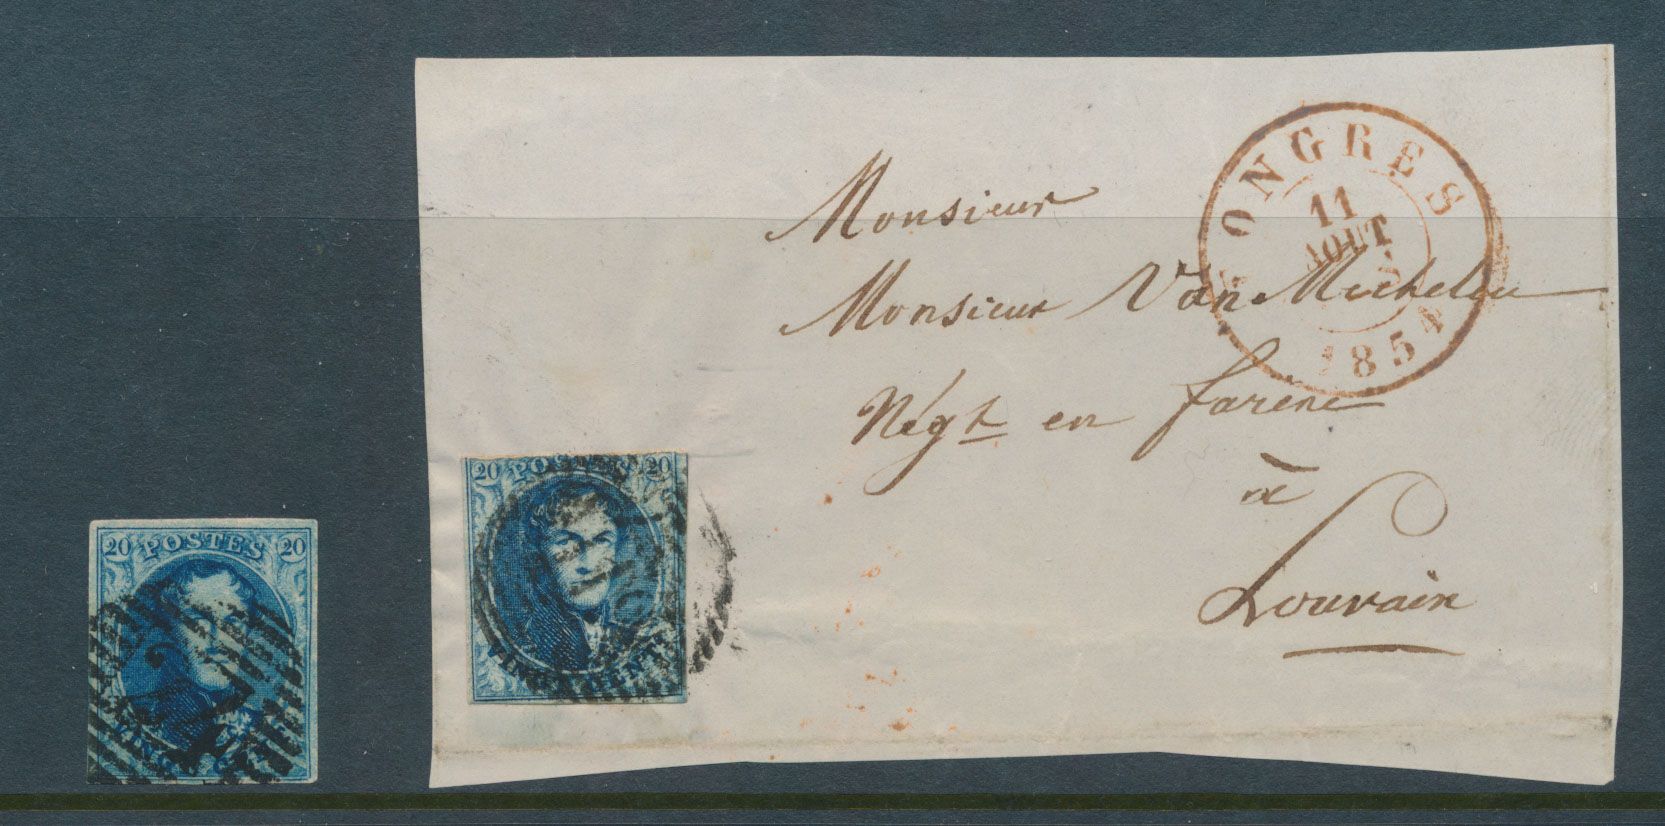 20 POSTES 20
VINGT
20 POSTES 20
VINGT CENTS
TONGRES
11
AOUT
1854
Monsieur
Monsieur Van
Négt en farine
à
Louvain